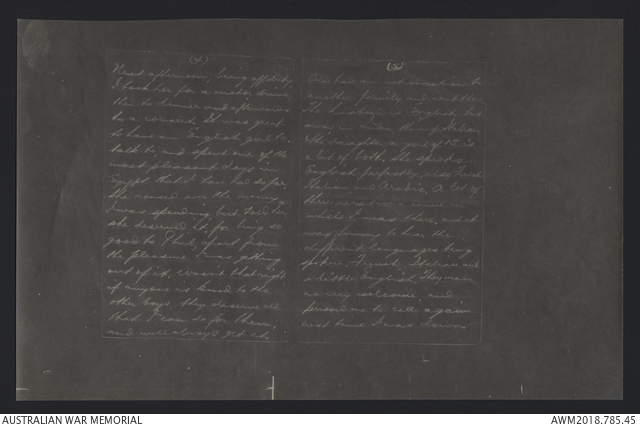 (4)
Next afternoon, being off duty,
I took her for a motor drive
then to dinner and afterwards
to a concert. It was great
to have an English girl to
talk to and spent one of the
most pleasant days in
Egypt that I have had so far.
She roused me the money
I was spending, but told her
she deserved it, for being so
good to Phil, apart from
the pleasure I was getting
out of it. Wasn't that right
if anyone is kind to the
other boys they deserve all
that I can do for them,
and will always get it,
(5)
Also had an invitation to
another family and went
The husband is English but
was in and the Italian
The daughter a girl of 15 is
a bit of She speaks
English perfectly, also French
Italian and Arabic. A lot of
there came in
while I was there, and it
was funny to hear the
different languages being
spoken French, Italian and
a little English. They made
me very welcome, and
pressed me to call again
next time I was down
AUSTRALIAN WAR MEMORIAL
AWM2018.785.45